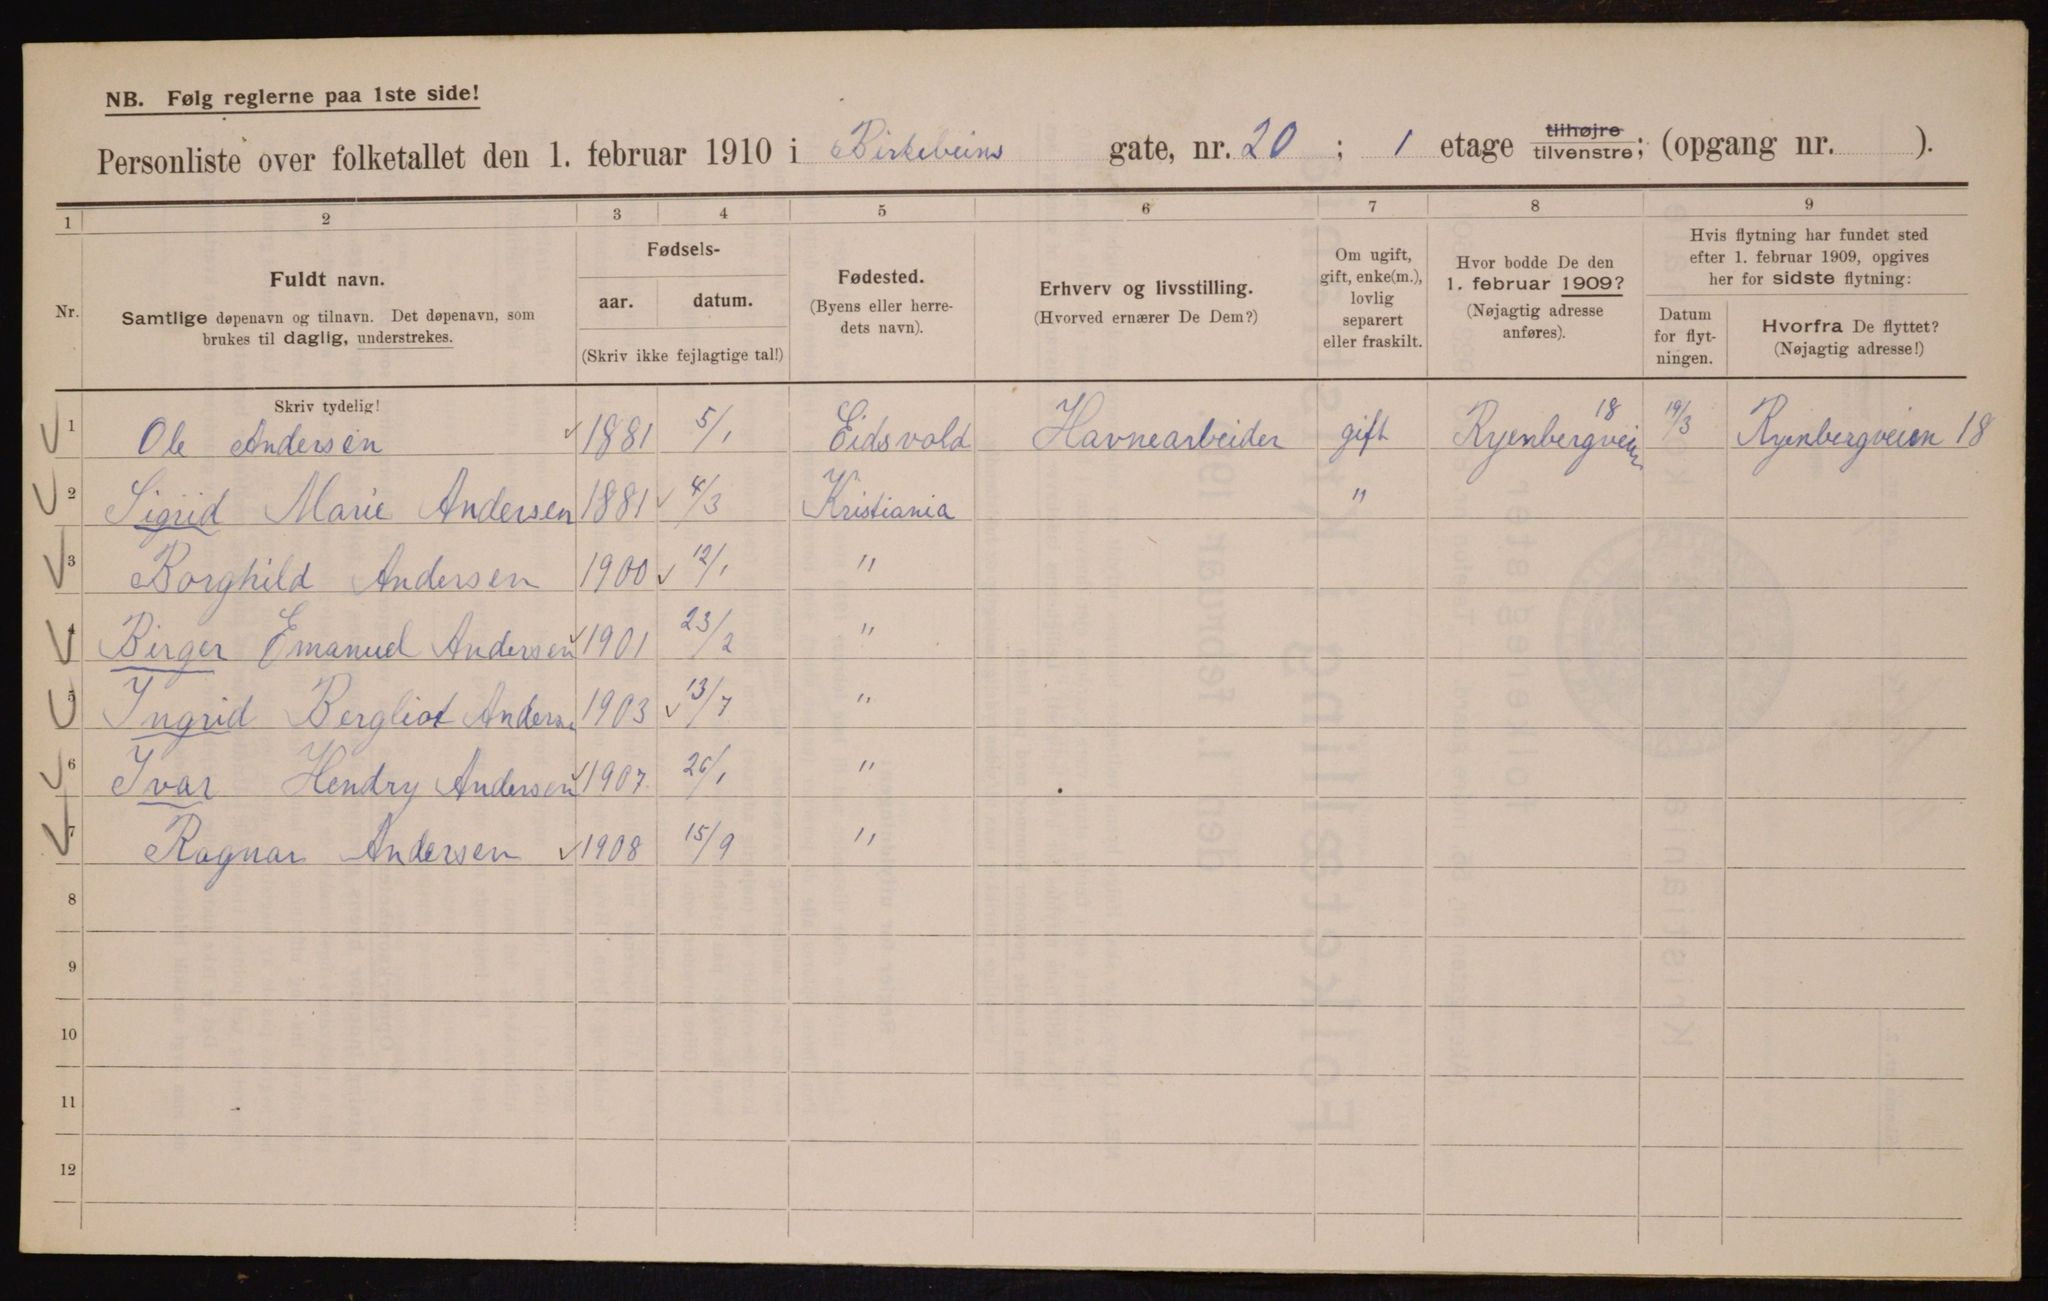 NB. Følg reglerne paa 1ste side!
Personliste over folketallet den 1. februar 1910 i Birkebeins gate, nr. 20 ; 1 etage tilhøjre tilvenstre; (opgang nr. ).
1 2 3 4 5 6 7 8 9
Nr.
Fuldt navn.
Samtlige døpenavn og tilnavn. Det døpenavn, som
brukes til daglig, understrekes.
Fødsels-
aar. datum.
(Skriv ikke fejlagtige tal!)
Fødested.
(Byens eller herre-
dets navn).
Erhverv og livsstilling.
(Hvorved ernærer De Dem?)
Om ugift,
gift, enke(m.),
lovlig
separert
eller fraskilt.
Hvor bodde De den
1. februar 1909?
(Nøjagtig adresse
anføres).
Hvis flytning har fundet sted
efter 1. februar 1909, opgives
her for sidste flytning:
Datum
for flyt-
ningen.
Hvorfra De flyttet?
(Nøjagtig adresse!)
Skriv tydelig!
1 Ole Andersen 1881 5/1 Eidsvold Havnearbeider gift Ryenbergveien 18 19/3 Ryenbergveien 18
2 Sigrid Marie Andersen 1881 4/3 Kristiania "
3 Borghild Andersen 1900 12/1 "
4 Birger Emanuel Andersen 1901 23/2 "
5 Ingrid Bergliot Andersen 1903 13/7 "
6 Ivar Hendry Andersen 1907 26/1 "
7 Ragnar Andersen 1908 15/9 "
8
9
10
11
12